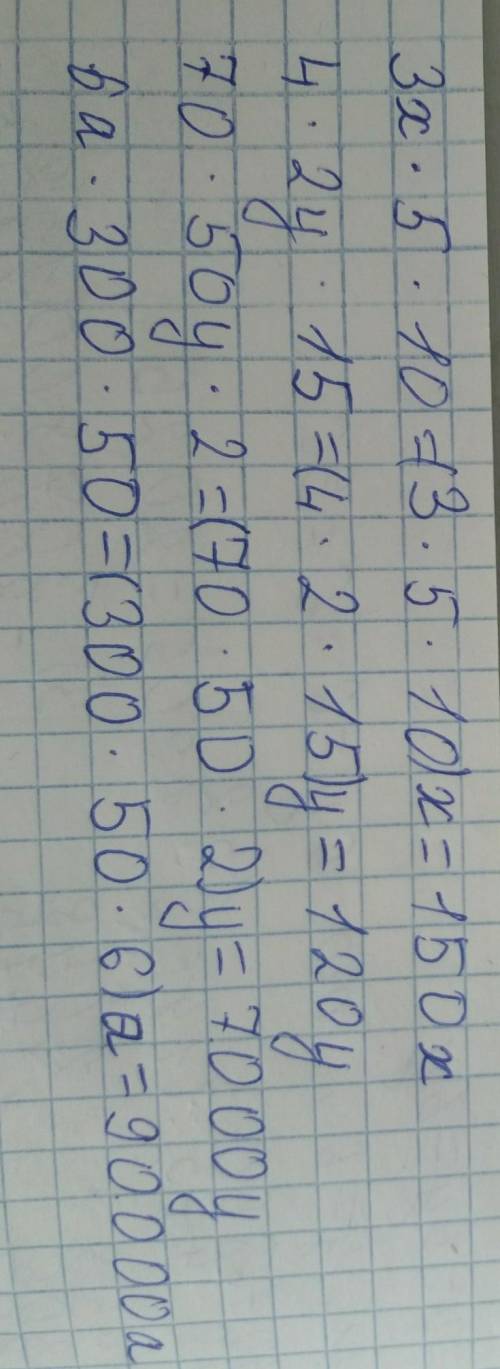 3x · 5 · 10 = (3 · 5 · 10)x = 150x
4 · 2y · 15 = (4 · 2 · 15)y = 120y
70 · 50y · 2 = (70 · 50 · 2)y = 7000y
6a · 300 · 50 = (300 · 50 · 6)a = 90000a